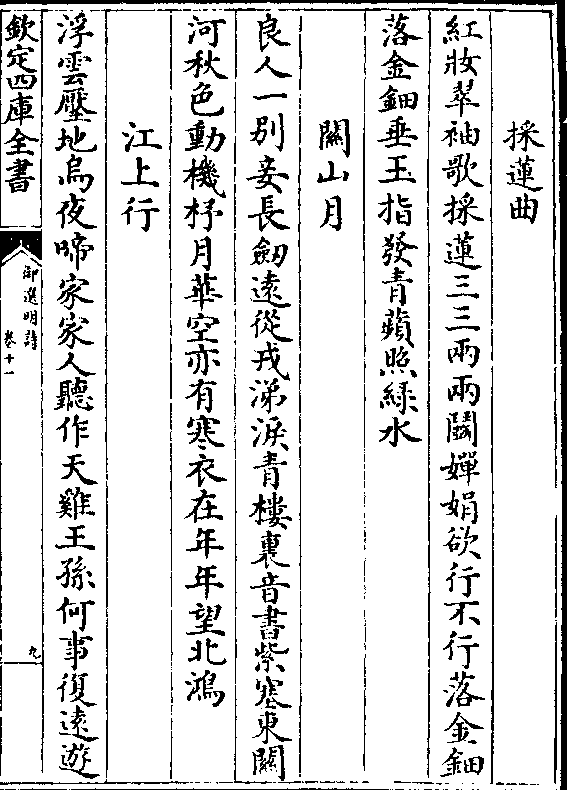 採蓮曲
紅妝翠袖歌採蓮三三兩兩鬭嬋娟欲行不行落金鈿
落金鈿垂玉指發青蘋照綠水
關山月
良人一別妾長劒遠從戎涕淚青樓裏音書紫塞東關
河秋色動機杼月華空亦有寒衣在年年望北鴻
江上行
浮雲壓地烏夜啼家家人聽作天雞王孫何事復遠遊
欽定四庫全書
御選明詩
卷十一
九